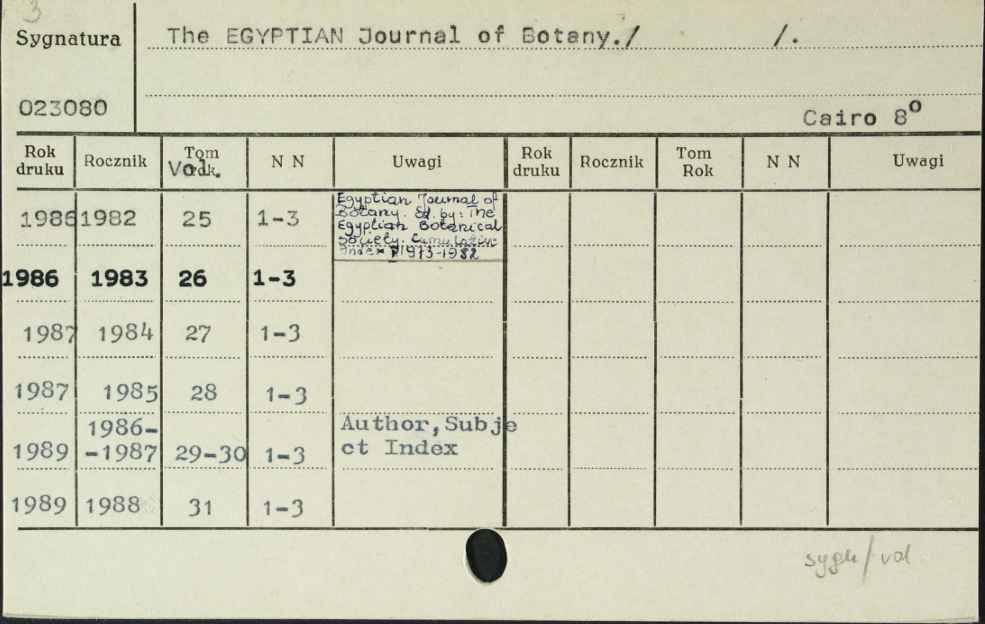 3
Sygnatura The EGYPTIAN Journal of Botany./ /.
023080 Cairo 8º
Rok druku Rocznik Tom Vol. Rok N N Uwagi Rok druku Rocznik Tom Rok N N Uwagi
1986 1982 25 1-3 Egyptian Journal of
Botany. Ed. by: The
Egyptian Botanical
Society. Cumulative
Index 1973-1982
1986 1983 26 1-3
1987 1984 27 1-3
1987 1985 28 1-3
1986- Author,Subje
1989 -1987 29-30 1-3 ct Index
1989 1988 31 1-3
sygn/vol